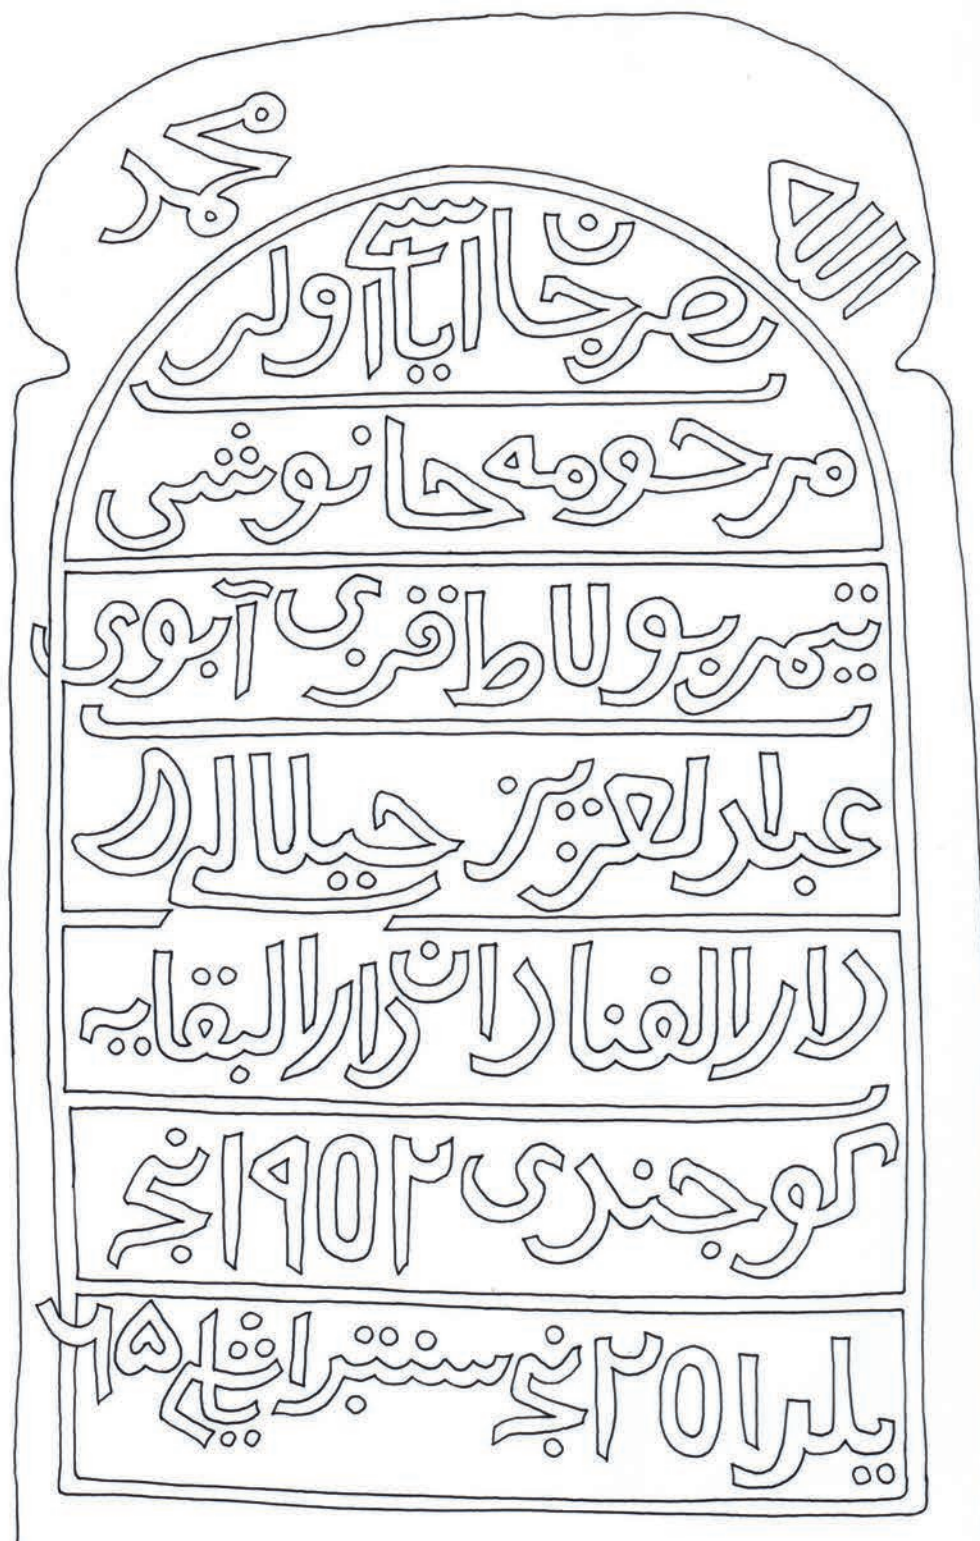 الله محمد
اولر
مرحومه حانوشی
تیمر بولاط قزی آبوی
عبدالعزیز جیلالی
دارالفنادان دارالبقایه
کوجندی ١٩٥٢ نجی
یلدا ٢٥ نجی سنتبر یاشی ٦٥